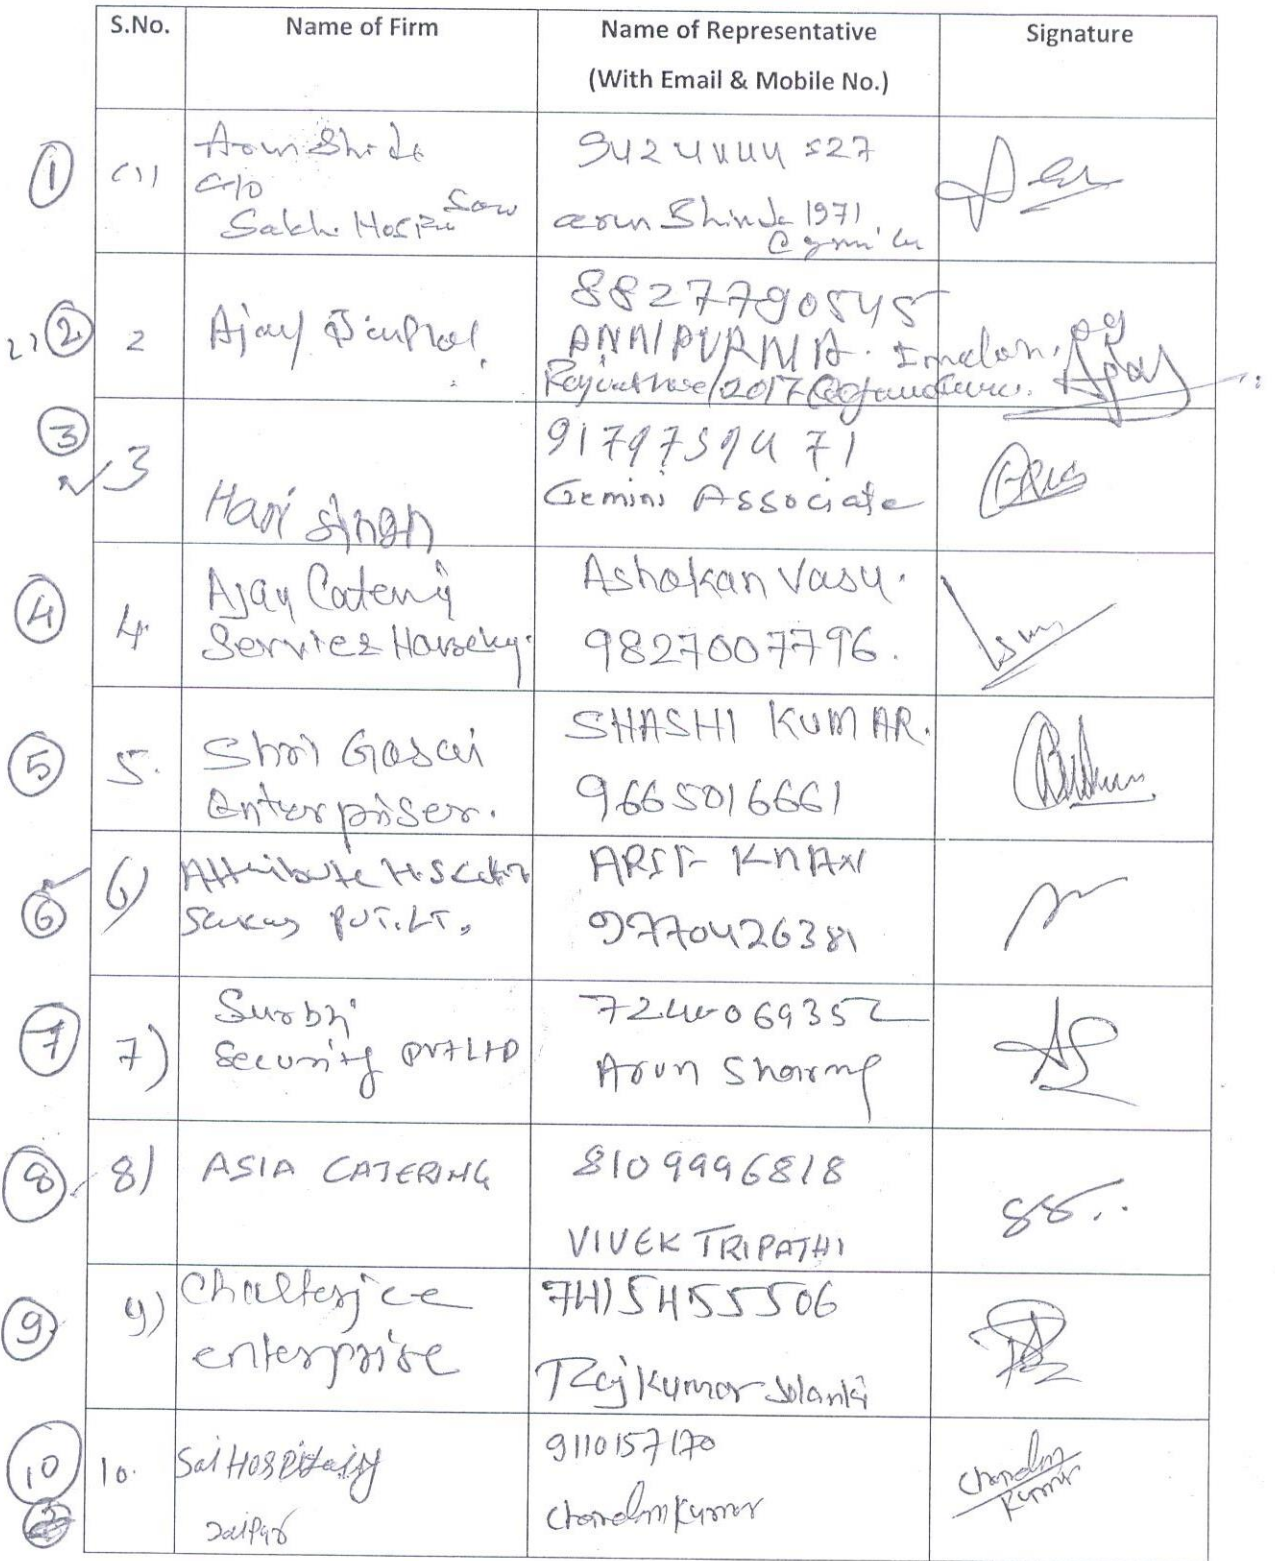 S.No.
Name of Firm
Name of Representative
(With Email & Mobile No.)
Signature
1
(1)
Arun Shinde
C/o
Sakhi Hospi
9424444527
arun Shinde 1971
@gmail
2
2
Ajay
8827790545
ANNAPURNA
3
3
Hari Singh
9179759471
Gemini Associate
4
4.
Ajay Catering
Services
Ashokan Vasu.
9827007796.
5
5.
Shri Gosai
Enterprises.
SHASHI KUMAR.
9665016661
6
6)
Attribute
PVT. LT.
ARIF KHAN
9770426381
7
7)
Surbhi
Security PVT LTD
7240069352
Arun Sharma
8
8)
ASIA CATERING
8109996818
VIVEK TRIPATHI
9
9)
Chatterjee
enterprise
7415455506
Rajkumar Solanki
10
10.
Sai Hospitality
Jaipur
9110157170
Chandan Kumar
Chandan
Kumar